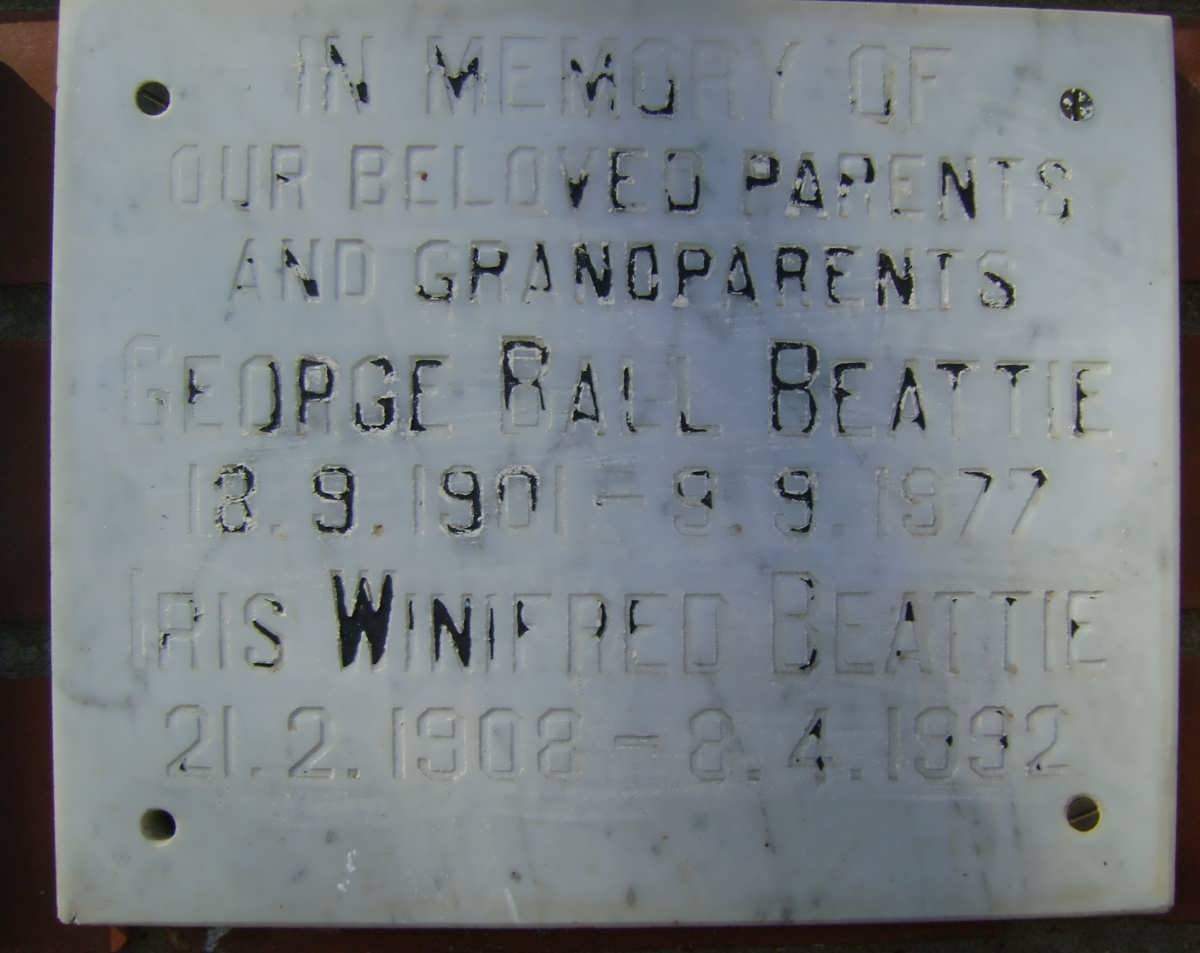 IN MEMORY OF
OUR BELOVED PARENTS
AND GRANDPARENTS
GEORGE BALL BEATTIE
18.9.1901 - 9.9.1977
IRIS WINIFRED BEATTIE
21.2.1908 - 8.4.1992